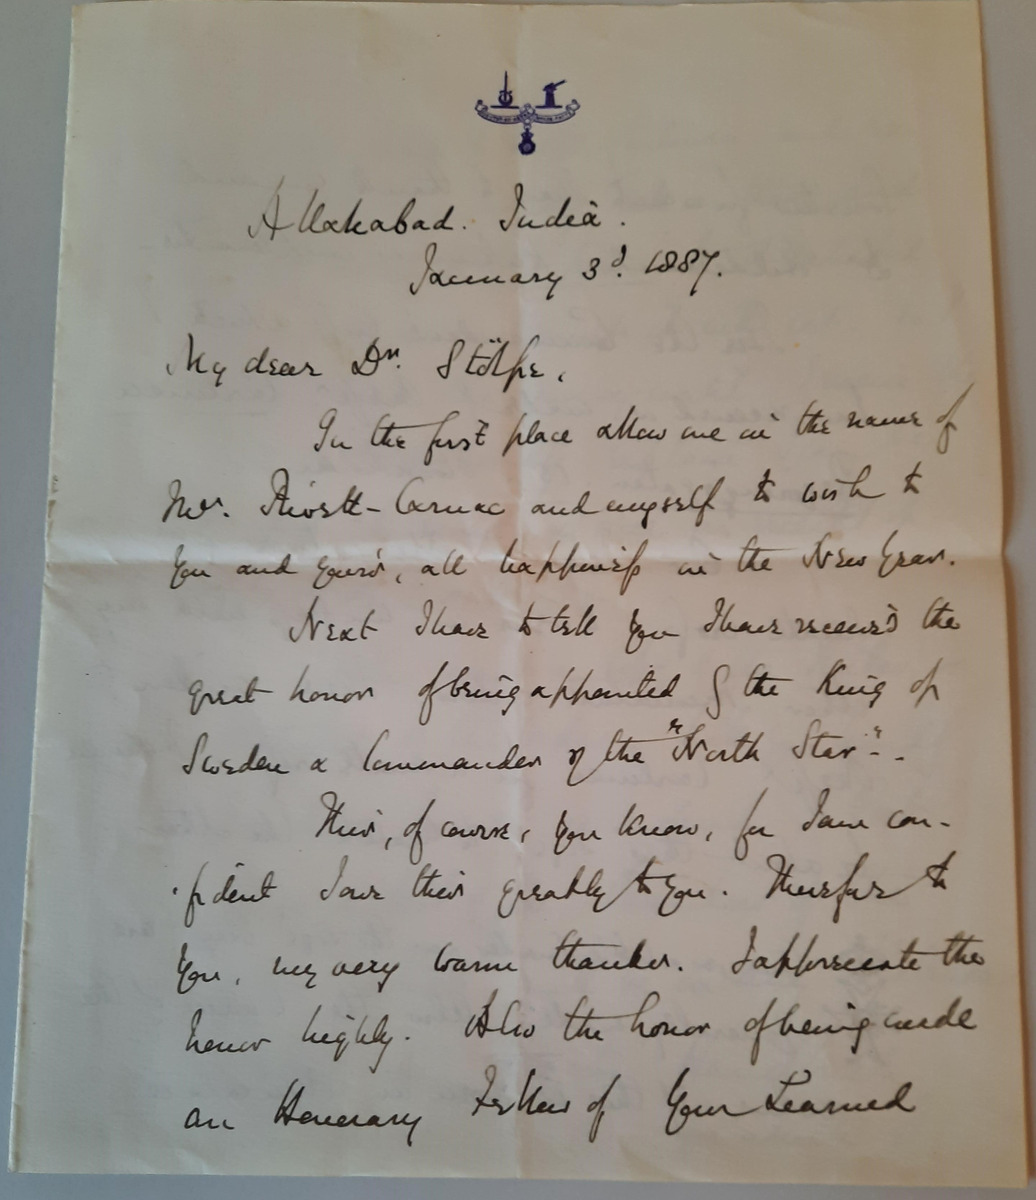 Allahabad. India.
January 3d. 1887.
My dear Dr. Stolpe,
In the first place allow me in the name of
Mrs. Rivett-Carnac and myself to wish to
you and yours, all happiness in the New Year.
Next I have to tell you I have received the
great honor of being appointed by the King of
Sweden a Commander of the "North Star".
This, of course, you know, for I am con-
fident I owe this greatly to you. Therefore to
you, my very warm thanks. I appreciate the
honor highly. Also the honor of being made
an Honorary Fellow of your Learned